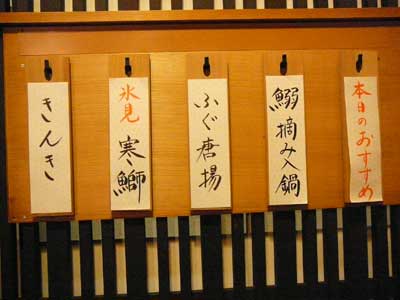 本日のおすすめ
鰯摘み入鍋
ふぐ唐揚
氷見 寒鰤
きんき